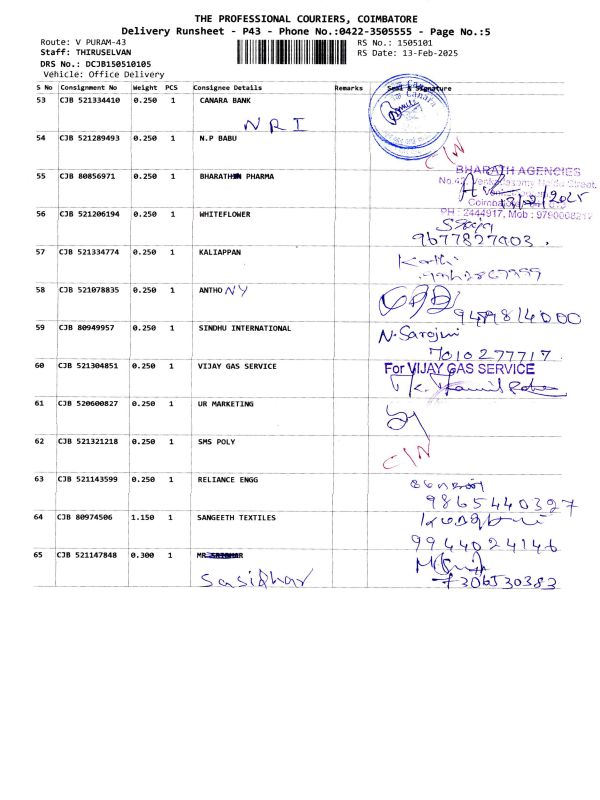 THE PROFESSIONAL COURIERS, COIMBATORE
Delivery Runsheet - P43 - Phone No.:0422-3505555 - Page No.:5
Route: V PURAM-43 RS No.: 1505101
Staff: THIRUSELVAN RS Date: 13-Feb-2025
DRS No.: DCJB150510105
Vehicle: Office Delivery
S No Consignment No Weight PCS Consignee Details Remarks Seal & Signature
53 CJB 521334410 0.250 1 CANARA BANK
Canara
NRI
54 CJB 521289493 0.250 1 N.P BABU C/N
55 CJB 80856971 0.250 1 BHARATH PHARMA
BHARATH AGENCIES
13/2/2025
PH : 2444917, Mob : 9790008212
56 CJB 521206194 0.250 1 WHITEFLOWER
9677827903.
57 CJB 521334774 0.250 1 KALIAPPAN
58 CJB 521078835 0.250 1 ANTHONY
59 CJB 80949957 0.250 1 SINDHU INTERNATIONAL N. Sarojini
7010277717.
60 CJB 521304851 0.250 1 VIJAY GAS SERVICE For VIJAY GAS SERVICE
61 CJB 520600827 0.250 1 UR MARKETING
62 CJB 521321218 0.250 1 SMS POLY C/N
63 CJB 521143599 0.250 1 RELIANCE ENGG
9865440327
64 CJB 80974506 1.150 1 SANGEETH TEXTILES
9944024146
65 CJB 521147848 0.300 1 MR
Sasidhar 7306530383